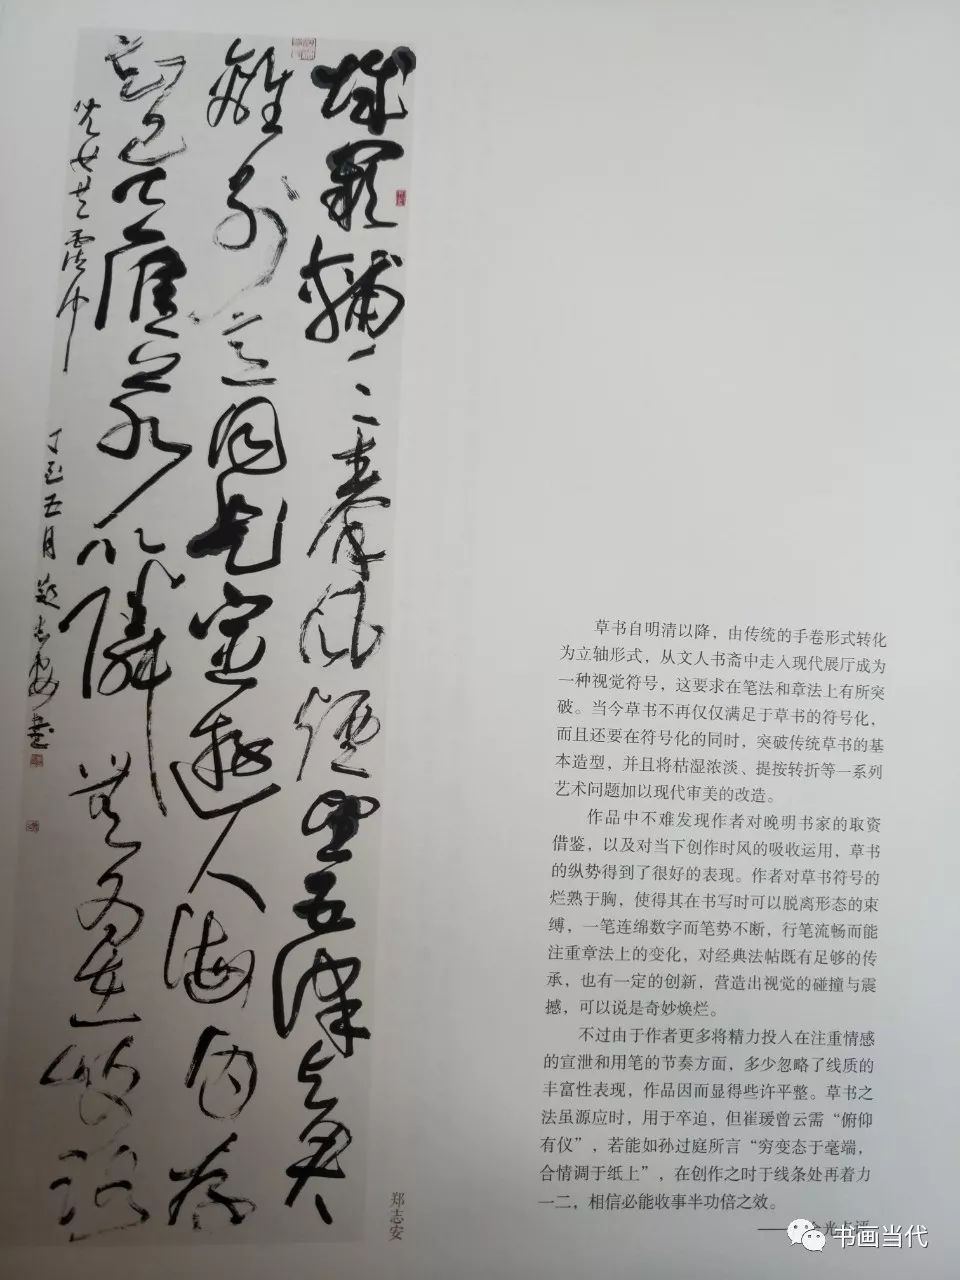 城闕輔三秦風煙望五津與君
離別意同是宦遊人海內存
知己天涯若比鄰無為在歧路
兒女共霑巾 丁酉五月 鄭志安書
郑志安
草书自明清以降，由传统的手卷形式转化
为立轴形式，从文人书斋中走入现代展厅成为
一种视觉符号，这要求在笔法和章法上有所突
破。当今草书不再仅仅满足于草书的符号化，
而且还要在符号化的同时，突破传统草书的基
本造型，并且将枯湿浓淡、提按转折等一系列
艺术问题加以现代审美的改造。
作品中不难发现作者对晚明书家的取资
借鉴，以及对当下创作时风的吸收运用，草书
的纵势得到了很好的表现。作者对草书符号的
烂熟于胸，使得其在书写时可以脱离形态的束
缚，一笔连绵数字而笔势不断，行笔流畅而能
注重章法上的变化，对经典法帖既有足够的传
承，也有一定的创新，营造出视觉的碰撞与震
撼，可以说是奇妙焕烂。
不过由于作者更多将精力投入在注重情感
的宣泄和用笔的节奏方面，多少忽略了线质的
丰富性表现，作品因而显得些许平整。草书之
法虽源应时，用于卒迫，但崔瑗曾云需“俯仰
有仪”，若能如孙过庭所言“穷变态于毫端，
合情调于纸上”，在创作之时于线条处再着力
一二，相信必能收事半功倍之效。
书画当代